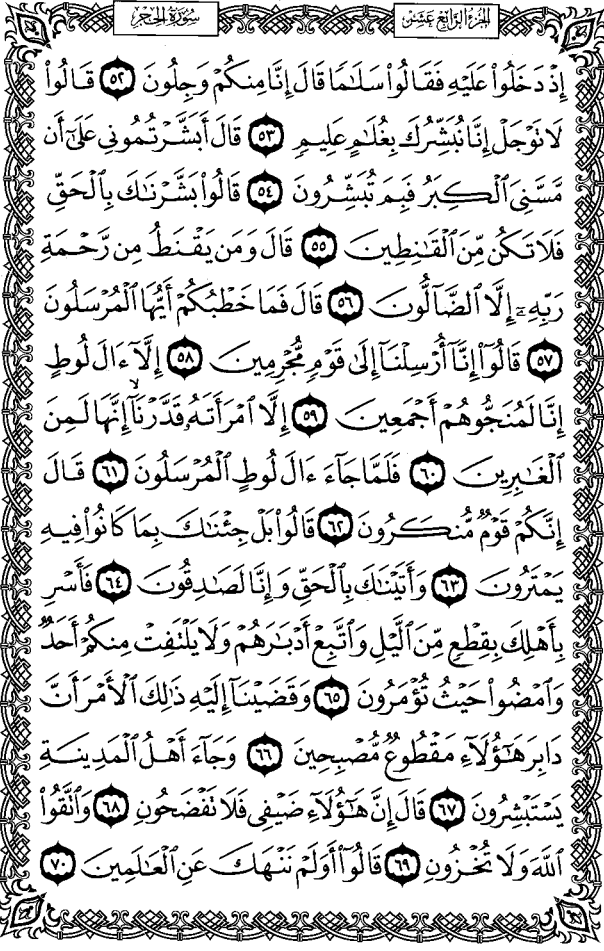 الجزء الرابع عشر
سورة الحجر
إِذْ دَخَلُوا۟ عَلَيْهِ فَقَالُوا۟ سَلَـٰمًا قَالَ إِنَّا مِنكُمْ وَجِلُونَ ٥٢ قَالُوا۟
لَا تَوْجَلْ إِنَّا نُبَشِّرُكَ بِغُلَـٰمٍ عَلِيمٍ ٥٣ قَالَ أَبَشَّرْتُمُونِى عَلَىٰٓ أَن
مَّسَّنِىَ ٱلْكِبَرُ فَبِمَ تُبَشِّرُونَ ٥٤ قَالُوا۟ بَشَّرْنَـٰكَ بِٱلْحَقِّ
فَلَا تَكُن مِّنَ ٱلْقَـٰنِطِينَ ٥٥ قَالَ وَمَن يَقْنَطُ مِن رَّحْمَةِ
رَبِّهِۦٓ إِلَّا ٱلضَّآلُّونَ ٥٦ قَالَ فَمَا خَطْبُكُمْ أَيُّهَا ٱلْمُرْسَلُونَ
٥٧ قَالُوٓا۟ إِنَّآ أُرْسِلْنَآ إِلَىٰ قَوْمٍ مُّجْرِمِينَ ٥٨ إِلَّآ ءَالَ لُوطٍ
إِنَّا لَمُنَجُّوهُمْ أَجْمَعِينَ ٥٩ إِلَّا ٱمْرَأَتَهُۥ قَدَّرْنَآ ۙ إِنَّهَا لَمِنَ
ٱلْغَـٰبِرِينَ ٦٠ فَلَمَّا جَآءَ ءَالَ لُوطٍ ٱلْمُرْسَلُونَ ٦١ قَالَ
إِنَّكُمْ قَوْمٌ مُّنكَرُونَ ٦٢ قَالُوا۟ بَلْ جِئْنَـٰكَ بِمَا كَانُوا۟ فِيهِ
يَمْتَرُونَ ٦٣ وَأَتَيْنَـٰكَ بِٱلْحَقِّ وَإِنَّا لَصَـٰدِقُونَ ٦٤ فَأَسْرِ
بِأَهْلِكَ بِقِطْعٍ مِّنَ ٱلَّيْلِ وَٱتَّبِعْ أَدْبَـٰرَهُمْ وَلَا يَلْتَفِتْ مِنكُمْ أَحَدٌ
وَٱمْضُوا۟ حَيْثُ تُؤْمَرُونَ ٦٥ وَقَضَيْنَآ إِلَيْهِ ذَٰلِكَ ٱلْأَمْرَ أَنَّ
دَابِرَ هَـٰٓؤُلَآءِ مَقْطُوعٌ مُّصْبِحِينَ ٦٦ وَجَآءَ أَهْلُ ٱلْمَدِينَةِ
يَسْتَبْشِرُونَ ٦٧ قَالَ إِنَّ هَـٰٓؤُلَآءِ ضَيْفِى فَلَا تَفْضَحُونِ ٦٨ وَٱتَّقُوا۟
ٱللَّهَ وَلَا تُخْزُونِ ٦٩ قَالُوٓا۟ أَوَلَمْ نَنْهَكَ عَنِ ٱلْعَـٰلَمِينَ ٧٠